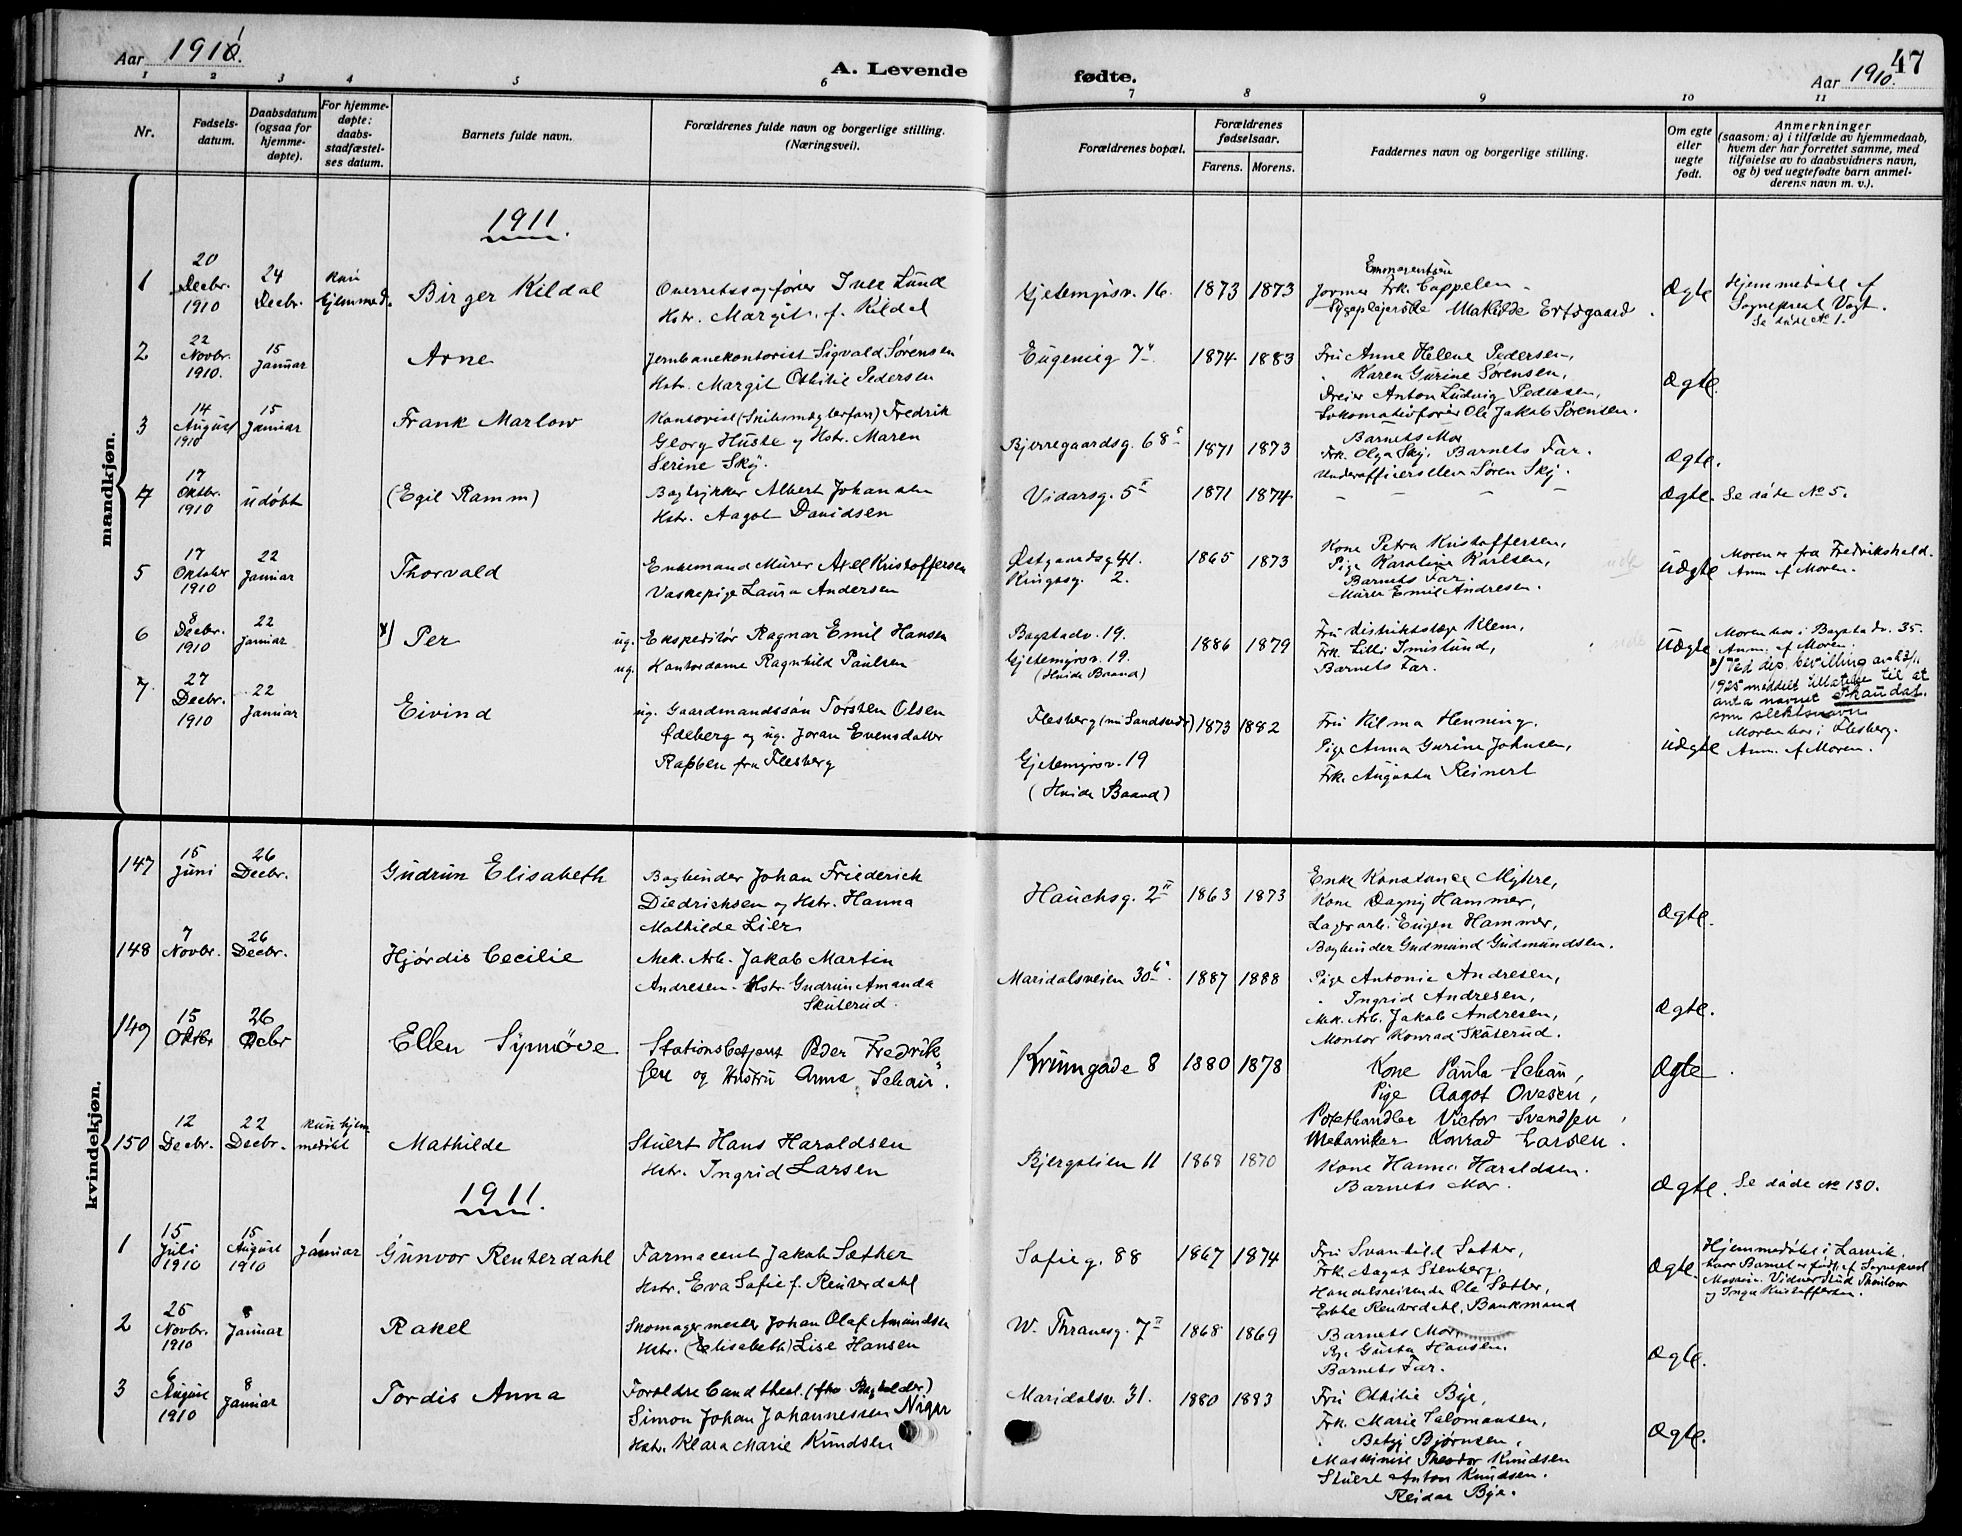 Aar 1911.
A. Levende
fødte.
Aar 1910.
47
1 2 3 4 5 6 7 8 9 10 11
Nr.
Fødsels-
datum.
Daabsdatum
(ogsaa for
hjemme-
døpte).
For hjemme-
døpte:
daabs-
stadfæstel-
ses datum.
Barnets fulde navn.
Forældrenes fulde navn og borgerlige stilling.
(Næringsvei).
Forældrenes bopæl.
Forældrenes
fødselsaar.
Farens. Morens.
Faddernes navn og borgerlige stilling.
Om egte
eller
uegte
født.
Anmerkninger
(saasom: a) i tilfælde av hjemmedaab,
hvem der har forrettet samme, med
tilføielse av to daabsvidners navn,
og b) ved uegtefødte barn anmel-
derens navn m. v.).
mandkjøn.
1911
1
20
Decbr.
1910
24
Decbr.
kun
hjemmed.
Birger Kildal
Overretssagfører Iver Lund
Hstr. Margit f. Kildal
Gjetemyrsv. 16.
1873 1873
Jormor Frk. Cappelen
Sygeplejerske Mathilde Ertsgaard.
Ægte
Hjemmedøbt af
Sogneprest Vogt.
Se døde No 1.
2
22
Novbr.
1910.
15
Januar
Arne
Jernbanekontorist Sigvald Sørensen
Hstr. Margit Othilie Pedersen
Eugenieg 7
1874 1883
Fru Anne Helene Pedersen,
Karen Gurine Sørensen,
Dreier Anton Ludvig Pedersen,
Lokomotivfører Ole Jakob Sørensen.
Ægte.
3
14
August
1910
15
Januar
Frank Marlow
Kontorist (Skibsmæglerforr) Fredrik
Georg Huste og Hstr. Maren
Serine Skÿ.
Bjerregaardsg. 68
1871 1873
Barnets Mor
Frk. Olga Skÿ. Barnets Far.
Underofficerselev Søren Skÿ.
Ægte.
4
17
Oktbr.
1910
udøbt
(Egil Ramm)
Bogtrykker Albert Johansen
Hstr. Aagot Davidsen
Vidarsg. 5 II
1871 1874
- - - -
Ægte.
Se døde No 5.
5
17
Oktober
1910
22
Januar
Thorvald
Enkemand Murer Axel Kristoffersen
Vaskepige Laura Andersen
Østgaardsg 41.
Kingosg. 2.
1865 1873
Kone Petra Kristoffersen,
Pige Karoline Karlsen,
Barnets Far.
Murer Emil Andresen.
uægte
Moren er fra Fredrikshald.
Anm. af Moren.
6
8
Decbr.
1910
22
Januar
x) Per
ug. Ekspeditør Ragnar Emil Hansen
ug. Kontordame Ragnhild Paulsen
Bagstadv. 19.
Gjetemyrsv. 19.
(Hvide Baand)
1886 1879
Fru distriktslæge Klem,
Frk. Lilli Imislund,
Barnets Far.
uægte
Moren bor i Bogstadv. 35.
Anm. af Moren.
x) Ved dep. bevilling av 23/11
1925 meddelt tillatelse til at
anta navnet Skaudat.
som slektsnavn
7
27
Decbr.
1910
22
Januar
Eivind
ug. Gaardmandssøn Torsten Olsen
Ødeberg og ug. Joran Evensdatter
Rabben fra Flesberg
Flesberg (nu Sandsvær)
Gjetemyrsv. 19
(Hvide Baand)
1873 1882
Fru Hilma Henning.
Pige Anna Gurine Johnsen,
Frk. Augusta Reinert
uægte
Moren bor i Flesberg.
Anm. af Moren.
kvindekjøn.
147
15
Juni
26
Decbr.
Gudrun Elisabeth
Bogbinder Johan Friederich
Diedrichsen og Hstr. Hanna
Mathilde Lier
Hauchsg. 2 II
1863 1873
Enke Konstance Myhre,
Kone Dagny Hammer,
Lagerarb. Eugen Hammer,
Bogbinder Gudmund Gudmundsen.
Ægte.
148
7
Novbr.
26
Decbr.
Hjørdis Cecilie
Mek. Arb. Jakob Martin
Andresen. Hstr. Gudrun Amanda
Skuterud.
Maridalsveien 30
1887 1888
Pige Antonie Andresen,
Ingrid Andresen,
Mek. Arb. Jakob Andresen,
Montør Konrad Skuterud.
Ægte.
149
15
Oktbr
26
Decbr
Ellen Synnøve
Stationsbetjent Peder Fredrik
og Hustru Anna Schau.
Krumgade 8
1880 1878
Kone Paula Schau,
Pige Aagot Ovesen,
Potethandler Victor Svendsen,
Mekaniker Konrad Larsen.
Ægte.
150
12
Decbr.
22
Decbr.
kun hjem-
medøbt
Mathilde
Stuert Hans Haraldsen
Hstr. Ingrid Larsen
Bjergstien 11
1868 1870
Kone Hanna Haraldsen.
Barnets Mor.
Ægte.
Se døde No 130.
1911.
1
15
Juli
1910
15
August
1910
1
Januar
Gunvor Renterdahl
Farmaceut Jakob Sæther
Hstr. Eva Sofie f. Renterdahl
Sofieg. 88
1867 1874
Fru Svanhild Sæther,
Frk. Aagot Stenberg.
Handelsreisende Ole Sæther,
Ebbe Renterdahl, Bankmand
Ægte.
Hjemmedøbt i Larvik,
hvor Barnet er født, af Sogneprest
2
25
Novbr.
1910
8
Januar
Rakel
Skomagermester Johan Olaf Amundsen
Hstr. (Elisabeth) Lise Hansen
W. Thranesg. 7 II
1868 1869
Barnets Mor,
Pg. Gusta Hansen.
Barnets Far.
Ægte.
3
6
August
1910
8
Januar
Tordis Anna
Forældre Cand theol. (fhv Bogholder)
Simon Johan Johannessen
Hstr. Klara Marie Knudsen
Maridalsv. 31.
1880 1883
Fru Othilie Bye,
Frk. Marie Salomonsen,
Betzy Bjørnsen,
Maskinist Theodor Knudsen
Stuert Anton Knudsen.
Reidar Bye.
Ægte.